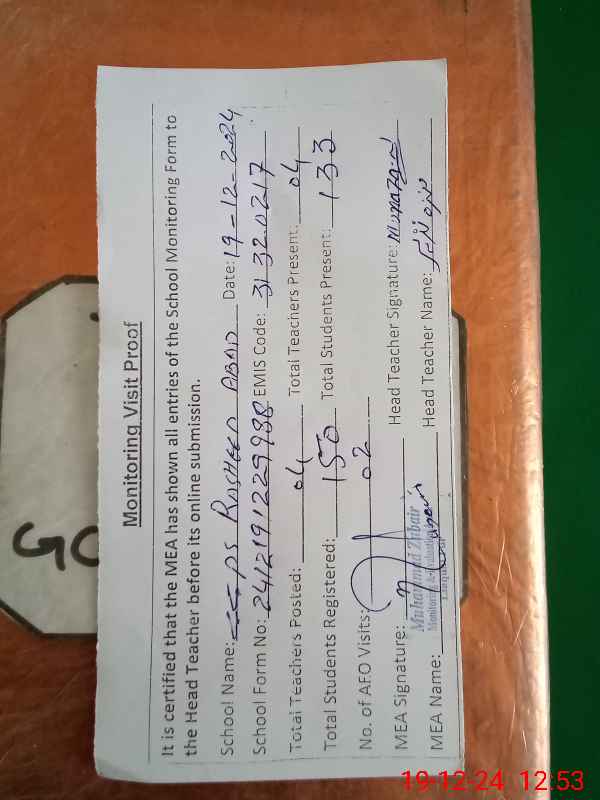 Monitoring Visit Proof
It is certified that the MEA has shown all entries of the School Monitoring Form to
the Head Teacher before its online submission.
School Name: PS RASHEED ABAD Date: 19-12-2024
School Form No: 2412191229938 EMIS Code: 31320217
Total Teachers Posted: 04 Total Teachers Present: 04
Total Students Registered: 150 Total Students Present: 133
No. of AEO Visits: 02
MEA Signature: Head Teacher Signature:
Muhammad Zubair
Monitoring & Evaluation
MEA Name: Head Teacher Name:
GO
19-12-24 12:53